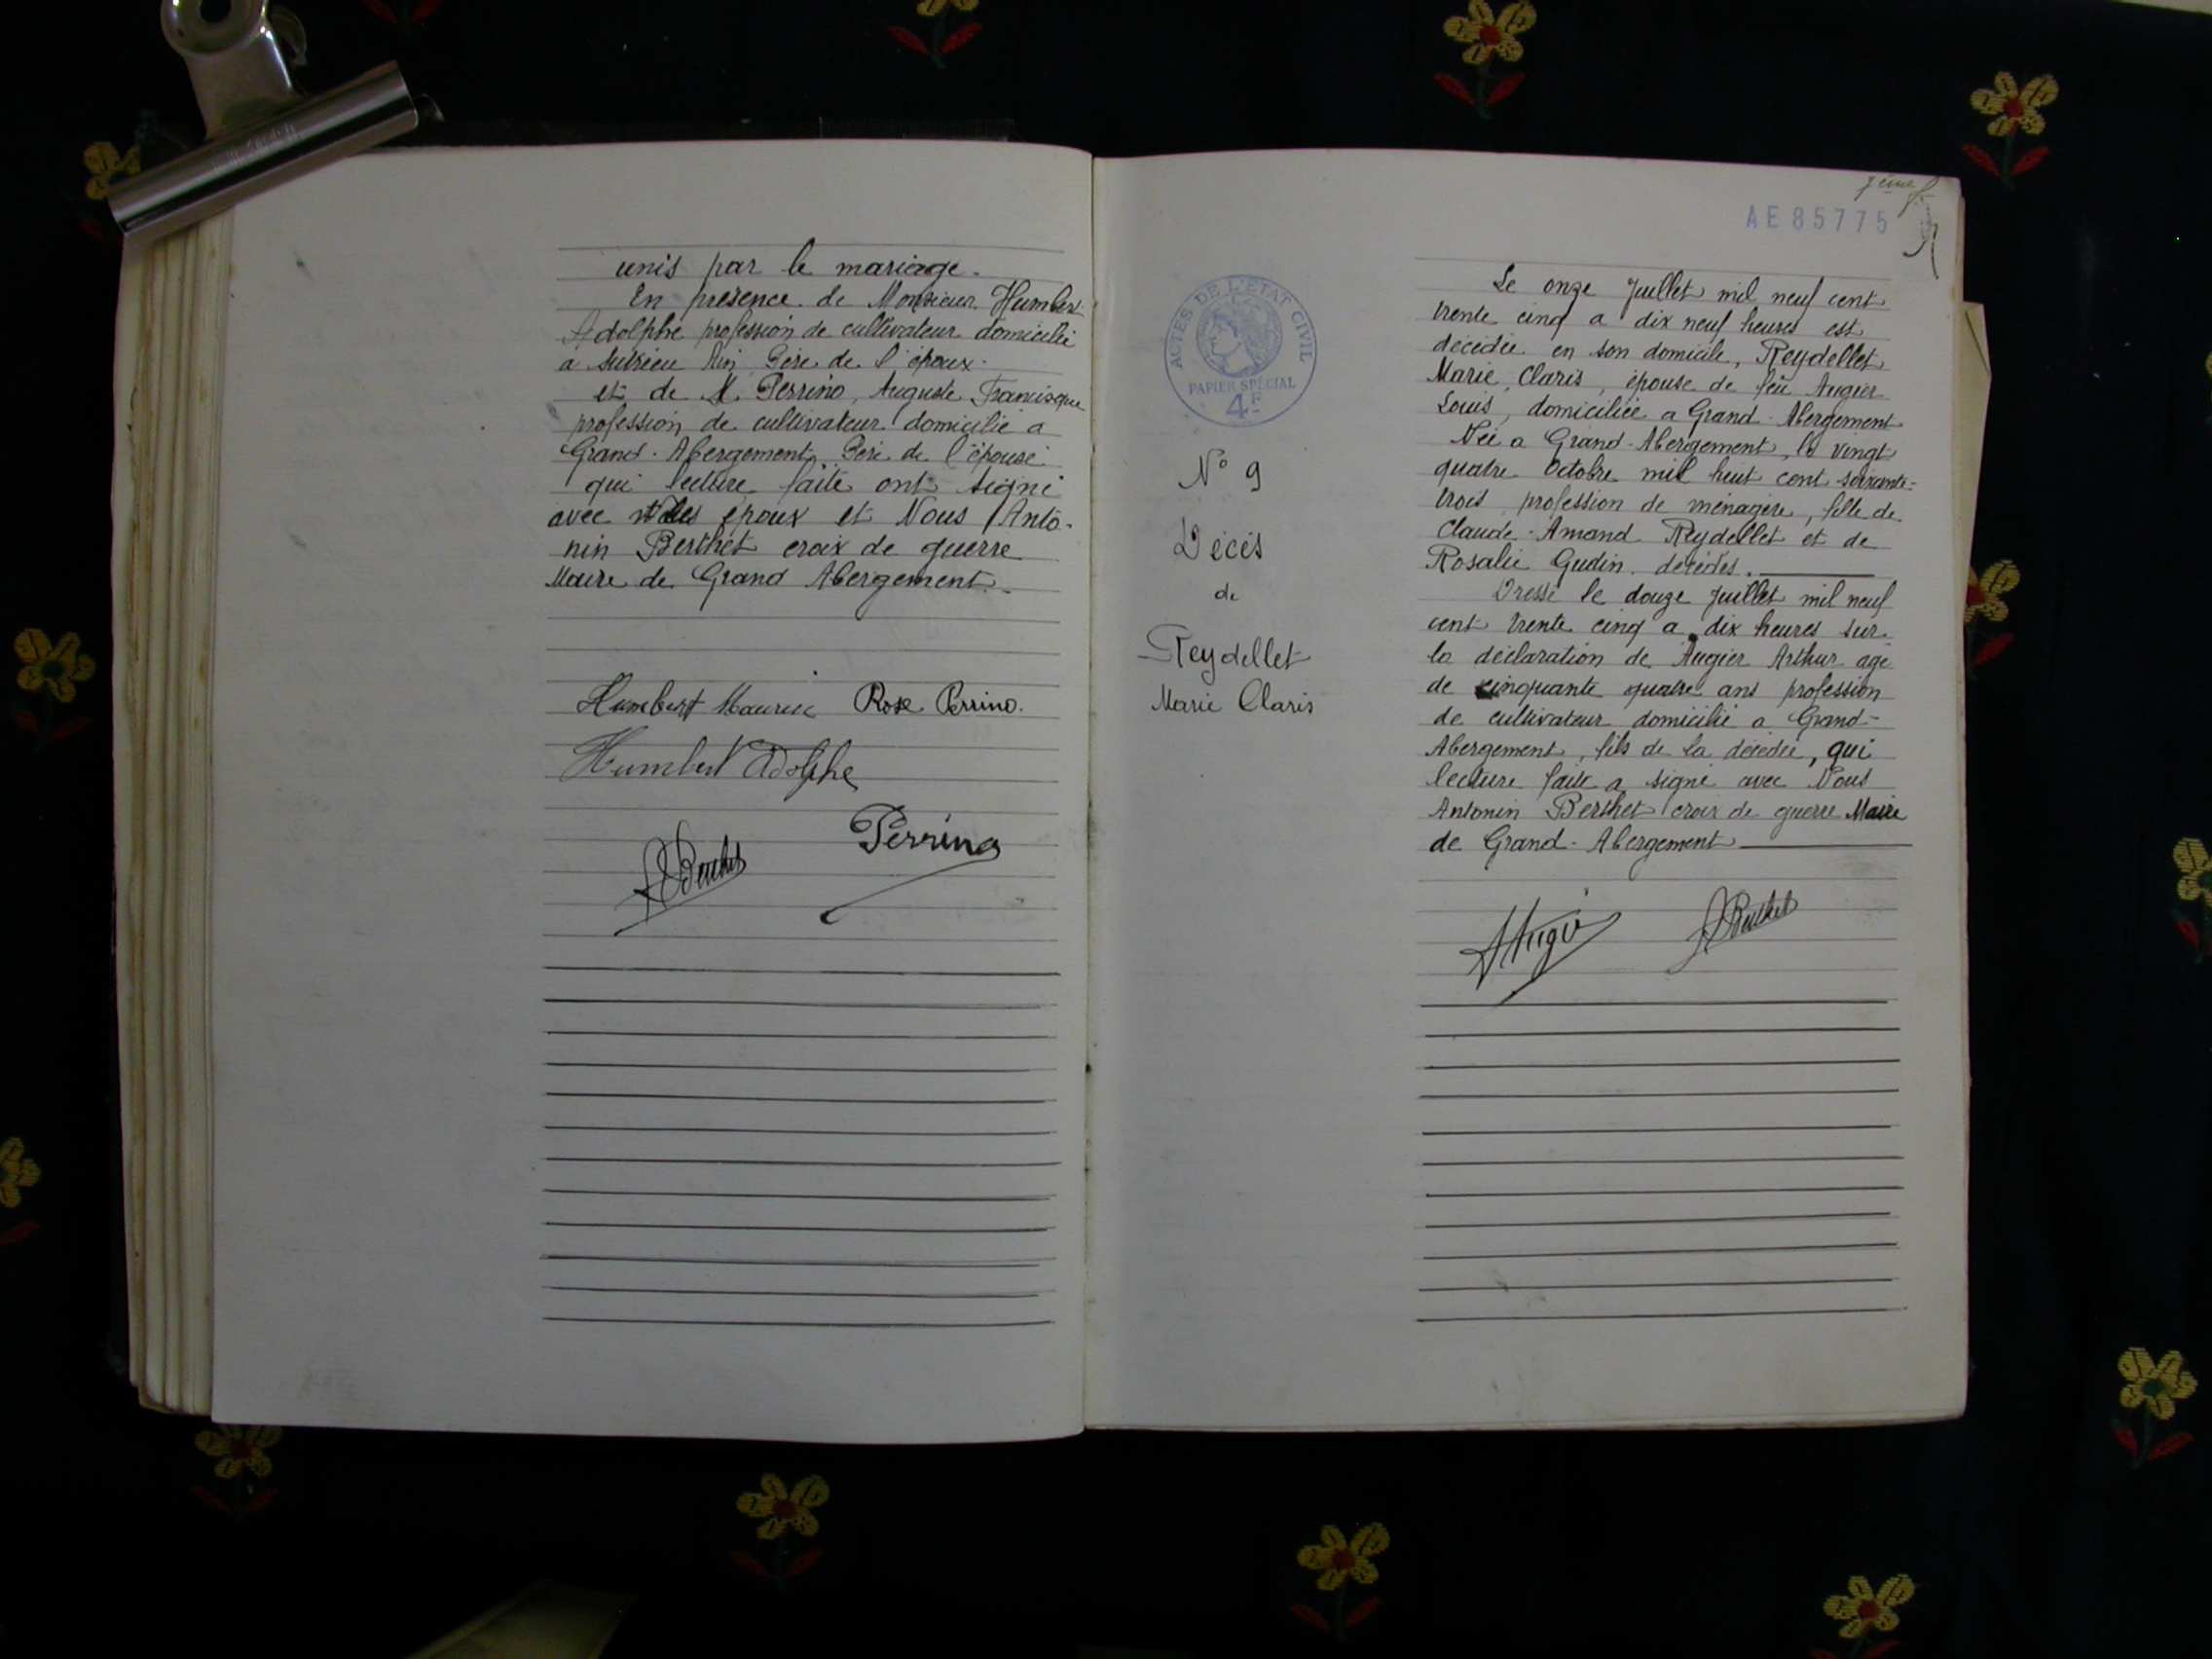 unis par le mariage.
En présence de Monsieur Humbert
Adolphe profession de cultivateur domicilié
a Sutrieu Ain Père de l'époux.
et de M. Perrino, Auguste Francisque
profession de cultivateur domicilié a
Grand-Abergement, Père de l'épouse
qui lecture faite ont signé
avec les époux et Nous Anto-
nin Berthet croix de guerre
Maire de Grand Abergement.
Humbert Maurice Rose Perrino.
Humbert Adolphe
Perrino
ABerthet
AE85775
ACTES DE L'ETAT CIVIL
PAPIER SPÉCIAL
4F
N° 9
Décés
de
Reydellet
Marie Claris
Le onze Juillet mil neuf cent
trente cinq a dix neuf heures est
décédée en son domicile, Reydellet
Marie, Claris, épouse de feu Augier
Louis, domiciliée a Grand-Abergement
Née a Grand-Abergement, le vingt
quatre Octobre mil huit cent soixante-
trois, profession de ménagère, fille de
Claude-Amand Reydellet et de
Rosalie Gudin. décédés.
Dressé le douze Juillet mil neuf
cent trente cinq a dix heures sur
la déclaration de Augier Arthur agé
de cinquante quatre ans profession
de cultivateur domicilié a Grand-
Abergement, fils de la décédée, qui
lecture faite a signé avec Nous
Antonin Berthet croix de guerre Maire
de Grand-Abergement
AAugier ABerthet